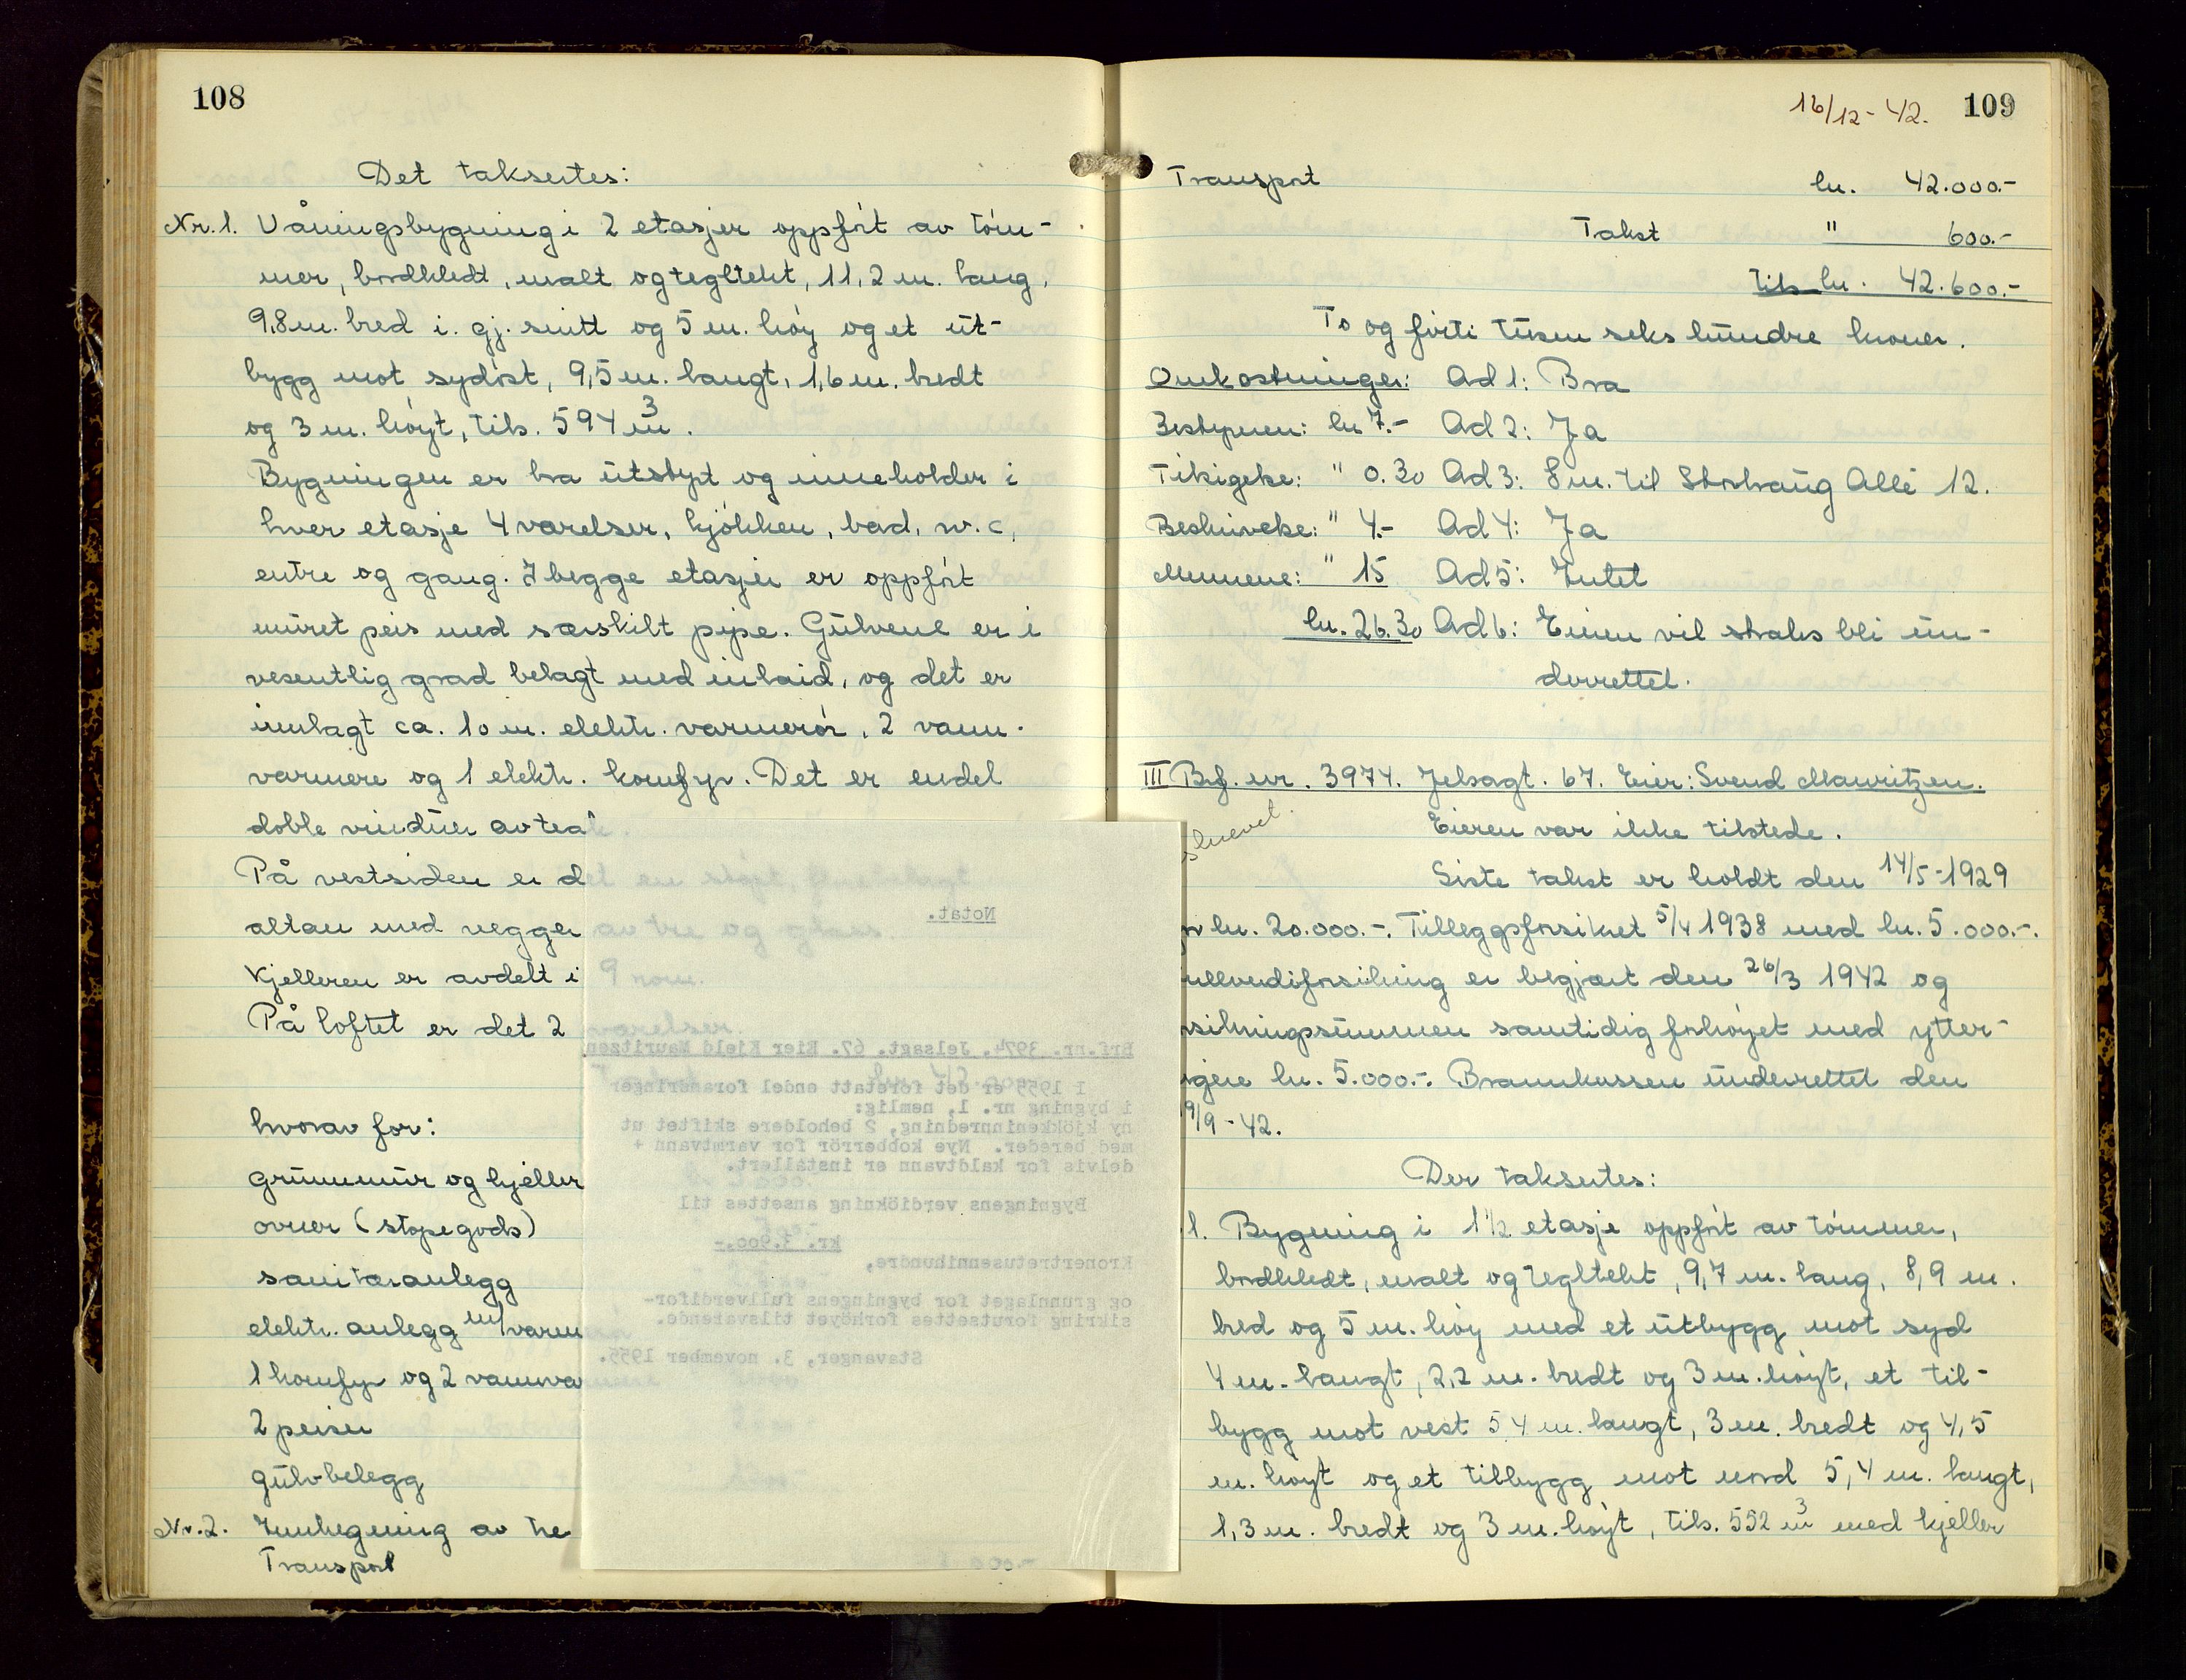 108
Det takseres:
Nr. 1. Våningsbygning i 2 etasjer oppført av tøm-
mer, bordkledt, malt og tegltekt, 11,2 m. lang,
9,8 m. bred i. gj. snitt og 5 m. høy og et ut-
bygg mot sydøst, 9,5 m. langt, 1,6 m. bredt
og 3 m. høyt, tils. 594 m³.
Bygningen er bra utstyrt og inneholder i
hver etasje 4 værelser, kjøkken, bad, w.c,
entre og gang. I begge etasjer er oppført
muret peis med særskilt pipe. Gulvene er i
vesentlig grad belagt med inlaid, og det er
innlagt ca. 10 m. elektr. varmerør, 2 vann-
varmere og 1 elektr. komfyr. Det er endel
doble vinduer av teak.
På vestsiden er det en støpt,
altan med vegger av tre og glass.
Kjelleren er avdelt i 9 rom.
På loftet er det 2 værelser.
hvorav for:
grunnmur og kjeller
ovner (støpegods)
sanitæranlegg
elektr. anlegg m/varm
1 komfyr og 2 vannva
2 peiser
gulvbelegg
Nr. 2. Innhegning av tre
Transport
Notat.
Brf.nr. 3974. Jelsagt. 67. Eier Kjeld Mauritzen
I 1955 er det foretatt endel forandringer
i bygning nr. 1, nemlig:
ny kjøkkeninnredning, 2 beholdere skiftet ut
med bereder. Nye kobberrör for varmtvann +
delvis for kaldtvann er installert.
Bygningens verdiökning ansettes til
kr. 3.900.-
Kronertretusennihundre,
og grunnlaget for bygningens fullverdifor-
sikring forutsettes forhöyet tilsvarende.
Stavanger, 3. november 1955.
16/12-42. 109
Transport kr. 42.000.-
Takst " 600.-
tils kr. 42.600.-
To og førti tusen seks hundre kroner.
Omkostninger: Ad 1: Bra
Bestyreren: kr 7.- Ad 2: Ja
Tilsigelse: " 0.30 Ad 3: 8 m. til Storhaug Allé 12.
Beskrivelse: " 4.- Ad 4: Ja
Mennene: " 15 Ad 5: Intet
kr. 26.30 Ad 6: Eieren vil straks bli un-
derrettet.
III Brf. nr. 3974. Jelsagt. 67. Eier: Svend Mauritzen.
Eieren var ikke tilstede.
Siste takst er holdt den 14/5-1929
kr. 20.000.-. Tilleggsforsikret 5/4 1938 med kr. 5.000.-.
ullverdiforsikring er begjært den 26/3 1942 og
rsikringssummen samtidig forhøyet med ytter-
igere kr. 5.000.-. Brannkassen underrettet den
9/9-42.
Der takseres:
1. Bygning i 1½ etasje oppført av tømmer,
bordkledt, malt og tegltekt, 9,7 m. lang, 8,9 m.
bred og 5 m. høy med et utbygg mot syd
4 m. langt, 2,2 m. bredt og 3 m. høyt, et til-
bygg mot vest 5 4 m. langt, 3 m. bredt og 4,5
m. høyt og et tilbygg mot nord 5,4 m. langt,
1,3 m. bredt og 3 m. høyt, tils. 552 m³ med kjeller